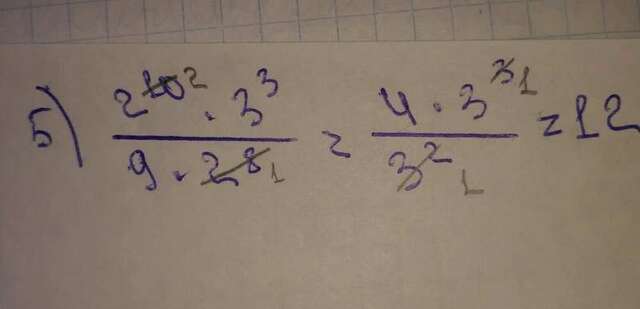 5) \frac{2^{10} ^2 \cdot 3^3}{9 \cdot 2^8 _1} = \frac{4 \cdot 3^{3} ^1}{3^2 _1} = 12